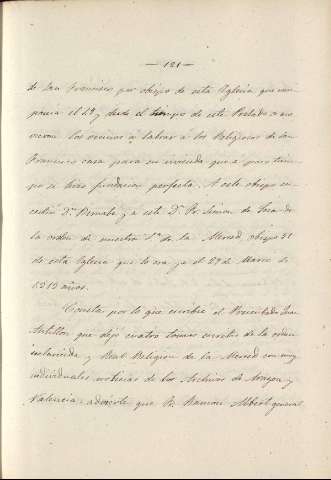 — 121 —
de San Francisco por obispo de esta Iglesia que em-
pieza el 1º y desde el tiempo de este Prelado
los vecinos a labrar a los Religiosos de San
Francisco casa para su vivienda que a poco tiem-
po se hizo fundacion perfecta. A este obispo su-
cedió Dn. Bernabe, y a este Dn. Fr. Simon de
la orden de nuestra Sra. de la Merced obispo 31
de esta Iglesia que lo era ya el 29 de Marzo de
1313 años.
Consta por lo que escribe el Presentado Juan
Antillon que dejó cuatro tomos escritos de la orden
esclarecida y Real Religion de la Merced con muy
individuales noticias de los Archivos de Aragon y
Valencia: advierte que Fr. Ramon Albert general